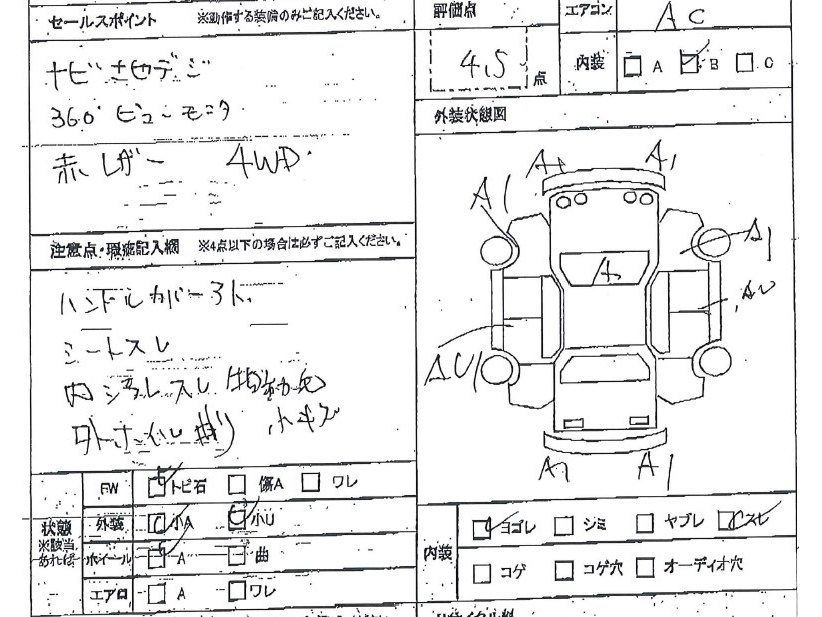 セールスポイント ※動作する装備のみご記入ください。
ナビ 地デジ
360° ビューモニタ
赤レザー 4WD
注意点・瑕疵記入欄 ※4点以下の場合は必ずご記入ください。
ハンドルカバースレ
シートスレ
内 スレ
外 小キズ
状態
※該当
あれば
FW トビ石 傷A ワレ
外装 小A 小U
ホイール A 曲
エアロ A ワレ
評価点
4.5 点
エアコン AC
内装 A B C
外装状態図
A1 A1
A1
A1
A
AU
AU1
A1 A1
内装
ヨゴレ シミ ヤブレ スレ
コゲ コゲ穴 オーディオ穴